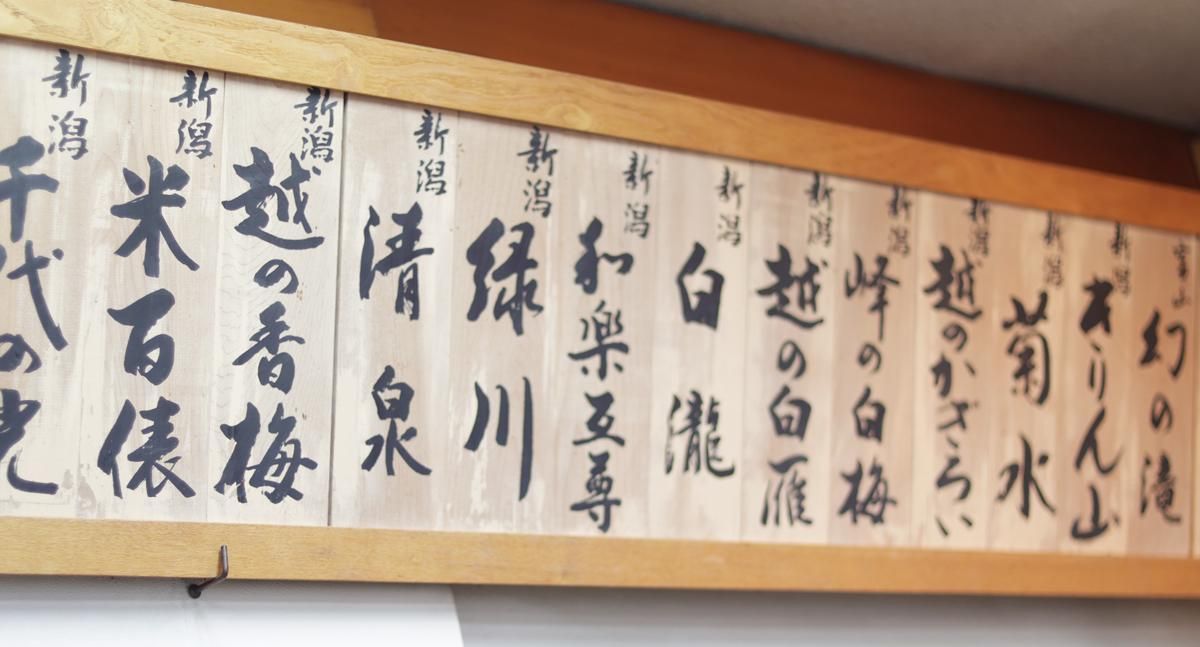 富山
幻の滝
新潟
きりん山
新潟
菊水
新潟
越のかぎろい
新潟
峰の白梅
新潟
越の白雁
新潟
白瀧
新潟
和楽互尊
新潟
緑川
新潟
清泉
新潟
越の香梅
新潟
米百俵
新潟
千代の光